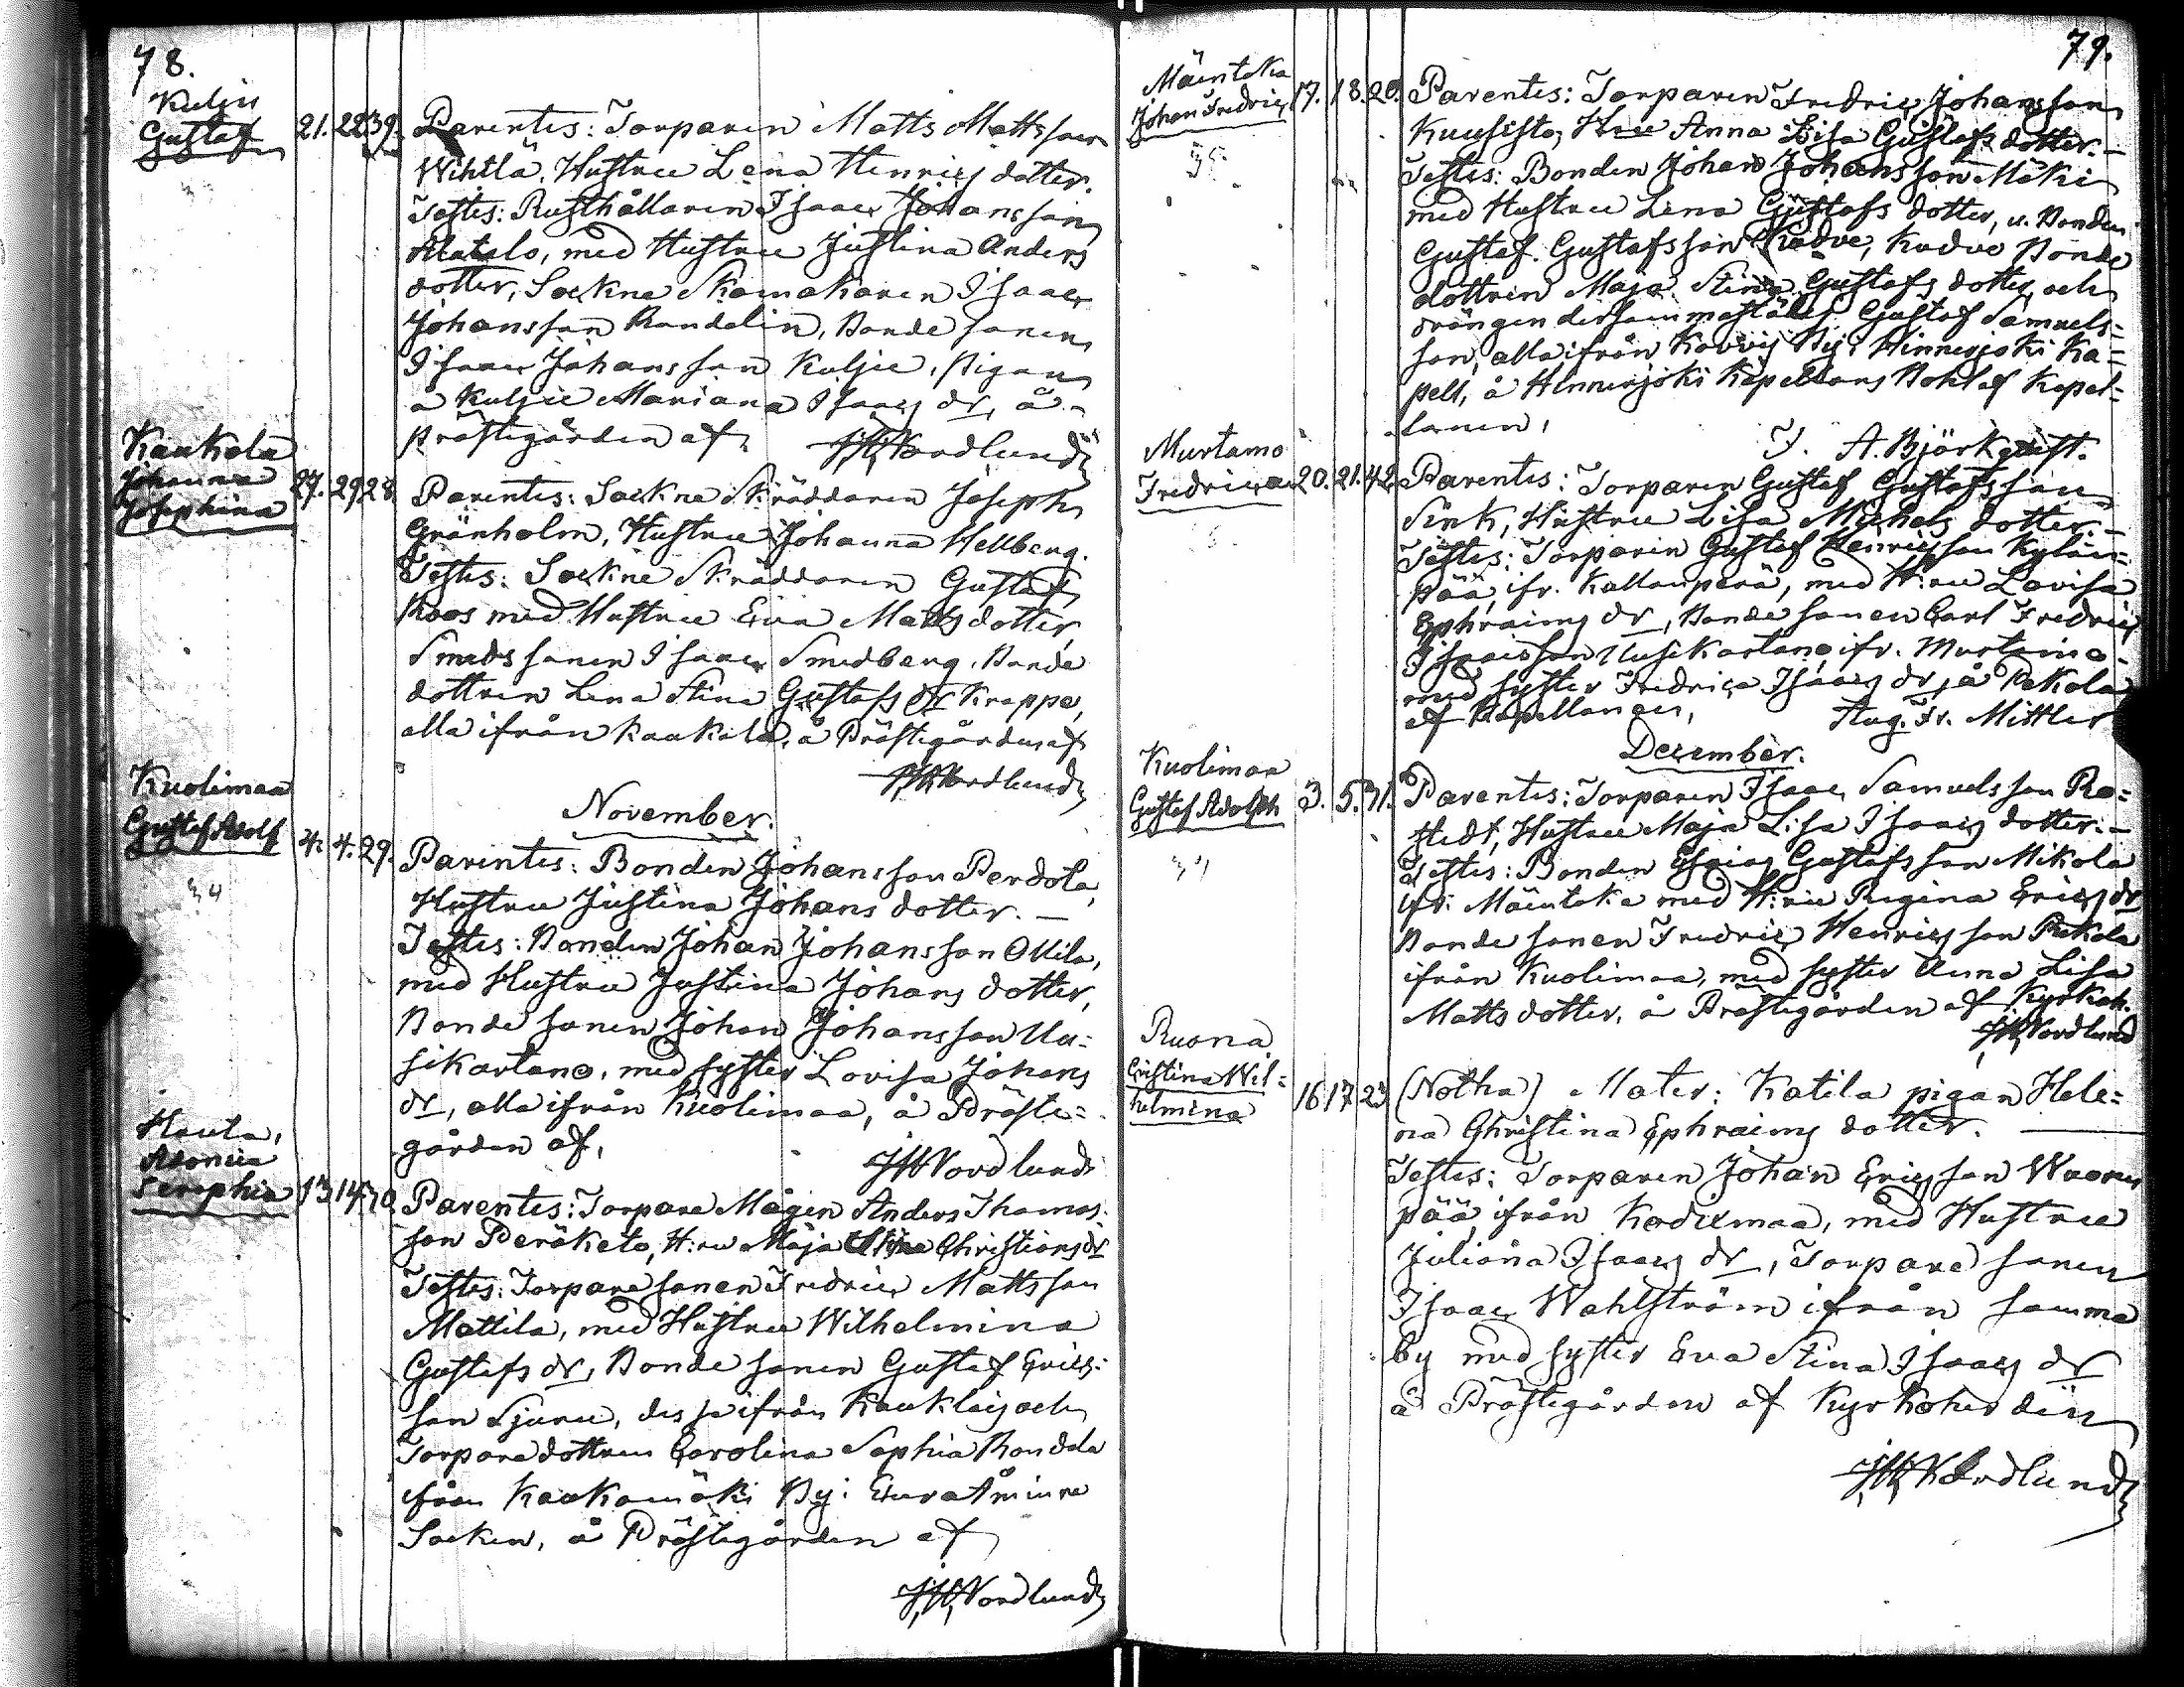 78.
Kulju
Gustaf
21. 22 39.
Parentes: Torparen Matts Mattsson
Wihtlä, Hustru Lena Henrics dotter.
Testes: Rusthållaren Isaac Johansson
Alatalo, med Hustru Justina Anders
dotter, Sockne Skomakaren Isaac
Johansson Randelin, Bonde sonen
Isaac Johansson Kulju, Pigan
a Kulju Mariana Isaacs dr, å
Prästegården af JH Nordlund
Kaukola
Johanna
Josephina
27. 29 28
Parentes: Sockne Skräddaren Joseph
Grönholm, Hustru Johanna Hellberg.
Testes: Sockne Skräddaren Gustaf
Roos med Hustru Eva Matts dotter,
Smeds sonen Isaac Smedberg, Bonde
dottren Lena Stina Gustafs dr Krappe,
alla ifrån Kaukola, å Prästegården af
JH Nordlund
November.
Kuolimaa
Gustaf Adolf
4. 4. 29.
Parentes: Bonden Johansson Perdola,
Hustru Justina Johans dotter. —
Testes: Bonden Johan Johansson Ollila,
med Hustru Justina Johans dotter,
Bonde sonen Johan Johansson Uu=
sikartano, med syster Lovisa Johans
dr, alla ifrån Kuolimaa, å Präste=
gården af, JH Nordlund
Hauta,
Adonia
Seraphia
13 14 70
Parentes: Torpare Mågen Anders Thomas=
son Peräketo, H:ru Maja Stina Christians dr
Testes: Torpare sonen Fredric Mattsson
Mattila, med Hustru Wilhelmina
Gustafs dr, Bonde sonen Gustaf Erics=
son Sjuru, dessa ifrån Kauklais och
Torpare dottren Carolina Sophia Randela
från Kaukomäki By i Eura Åminne
Socken, å Prästegården af
JH Nordlund
79.
Mäentaka
Johan Fredric
17. 18. 20.
Parentes: Torparen Fredric Johansson
Kuusisto, H:ru Anna Lisa Gustafs dotter. —
Testes: Bonden Johan Johansson Mäki
med Hustru Lena Gustafs dotter, u. Bonden
Gustaf Gustafsson Kadve, Kadve Bonde
dottren Maja Stina Gustafs dotter, och
drängen dersammastädes Gustaf Samuels=
son, alla ifrån By i Hinnerjoki Ka=
pell, å Hinnerjoki Kapellans Bohl af Kapel=
lanen, J. A. Björkqvist.
Murtamo
Fredrica
20. 21. 42.
Parentes: Torparen Gustaf Gustafsson
Sink, Hustru Lisa Michels dotter. —
Testes: Torparen Gustaf Henricsson Kylän=
pää, ifr. Kallanperä, med H:ru Lovisa
Ephraims dr, Bonde sonen Carl Fredric
Isaacsson Uusikartano, ifr. Murtamo
med syster Fredrica Isaacs dr, å Pekola
af Kapellanen, Aug. Fr. Mittler
December.
Kuolimaa
Gustaf Adolph
3. 5. 31.
Parentes: Torparen Isaac Samuelsson Ro=
stedt, Hustru Maja Lisa Isaacs dotter. —
Testes: Bonden Esaias Gustafsson Mikola
ifr. Mäentaka med H:ru Regina Erics dr
Bonde sonen Fredric Henricsson Pekola
ifrån Kuolimaa, med syster Anna Lisa
Matts dotter, å Prästegården af Kyrkoh.
JH Nordlund
Ruona
Cristina Wil=
helmina
16 17 23
(Notha) Mater: Katila pigan Hele=
na Christina Ephraims dotter. —
Testes: Torparen Johan Ericsson Wuoren
pää, ifrån Kodixmaa, med Hustru
Juliana Isaacs dr, Torpare sonen
Isaac Wahlström ifrån samma
by med syster Eva Stina Isaacs dr
å Prästegården af Kyrkoherden
JH Nordlund